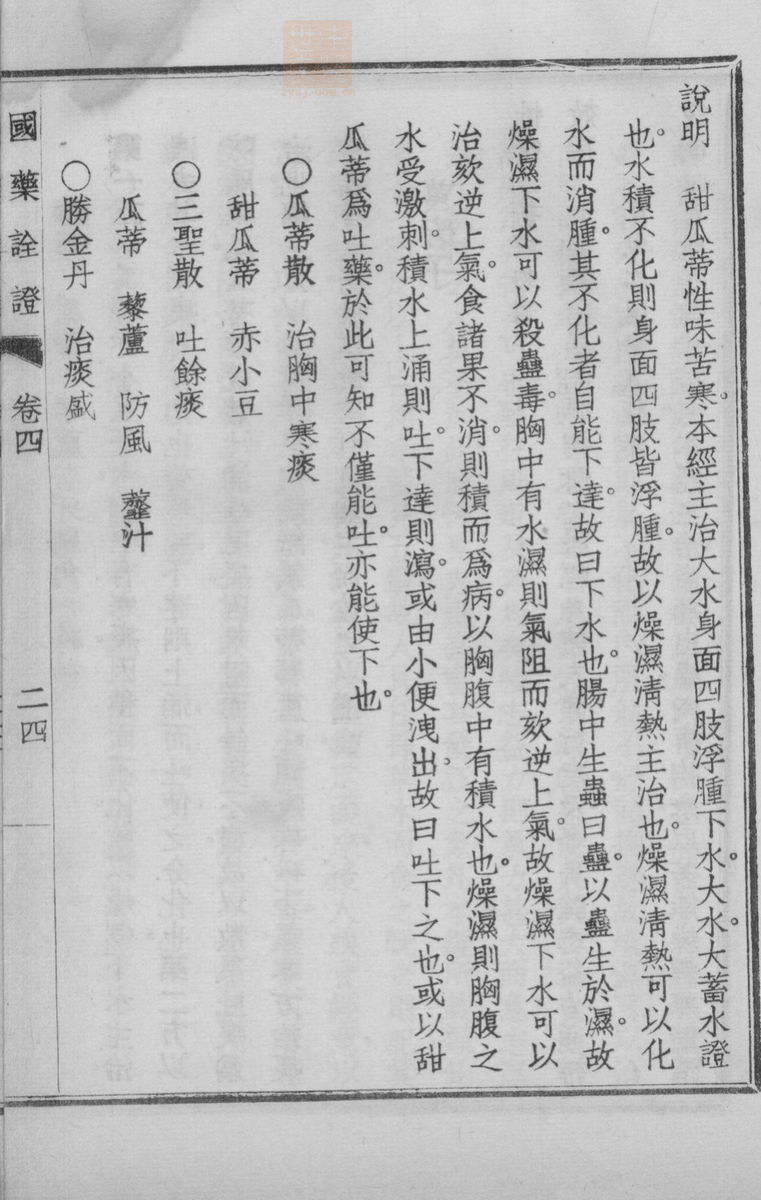 說明　甜瓜蒂性味苦寒。本經主治大水身面四肢浮腫下水。大水。大蓄水證
也。水積不化則身面四肢皆浮腫。故以燥濕清熱主治也。燥濕清熱可以化
水而消腫。其不化者自能下達。故曰下水也。腸中生蟲曰蠱。以蠱生於濕。故
燥濕下水可以殺蠱毒。胸中有水濕則氣阻而欬逆上氣。故燥濕下水可以
治欬逆上氣。食諸果不消。則積而爲病。以胸腹中有積水也。燥濕則胸腹之
水受激刺。積水上涌則吐。下達則瀉。或由小便洩出。故曰吐下之也。或以甜
瓜蒂爲吐藥。於此可知不僅能吐。亦能使下也。
〇瓜蒂散　治胸中寒痰
甜瓜蒂　赤小豆
〇三聖散　吐餘痰
瓜蒂　藜蘆　防風　虀汁
〇勝金丹　治痰盛
國藥詮證　卷四　二四